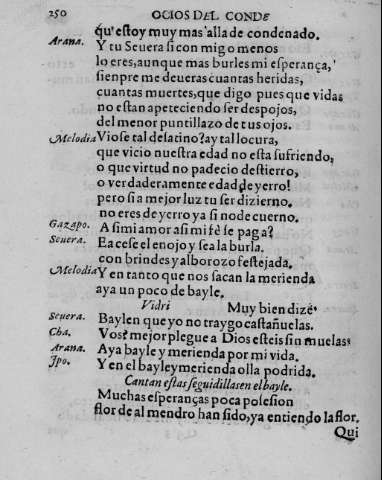 250 OCIOS DEL CONDE
qu'estoy muy mas alla de condenado.
Arana. Y tu Seuera si con migo menos
lo eres, aunque mas burles mi esperança,
sienpre me deueras cuantas heridas,
cuantas muertes, que digo pues que vidas
no estan apeteciendo ser despojos,
del menor puntillazo de tus ojos.
Melodia Viose tal desatino? ay tal locura,
que vicio nuestra edad no esta sufriendo,
o que virtud no padecio destierro,
o verdaderamente edad de yerro!
pero si a mejor luz tu ser dizierno.
no eres de yerro ya si no de cuerno.
Gazapo. A si mi amor asi mi fè se paga?
Seuera. Ea cese el enojo y sea la burla.
con brindes y alborozo festejada.
Melodia Y en tanto que nos sacan la merienda
aya un poco de bayle.
Vidri Muy bien dizē
Seuera. Baylen que yo no traygo castañuelas.
Cha. Vosè mejor plegue a Dios esteis sin muelas
Arana. Aya bayle y merienda por mi vida.
Ipo. Y en el bayle y merienda olla podrida.
Cantan estas seguidillas en el bayle.
Muchas esperanças poca posesion
flor de almendro han sido, ya entiendo la flor.
Qui